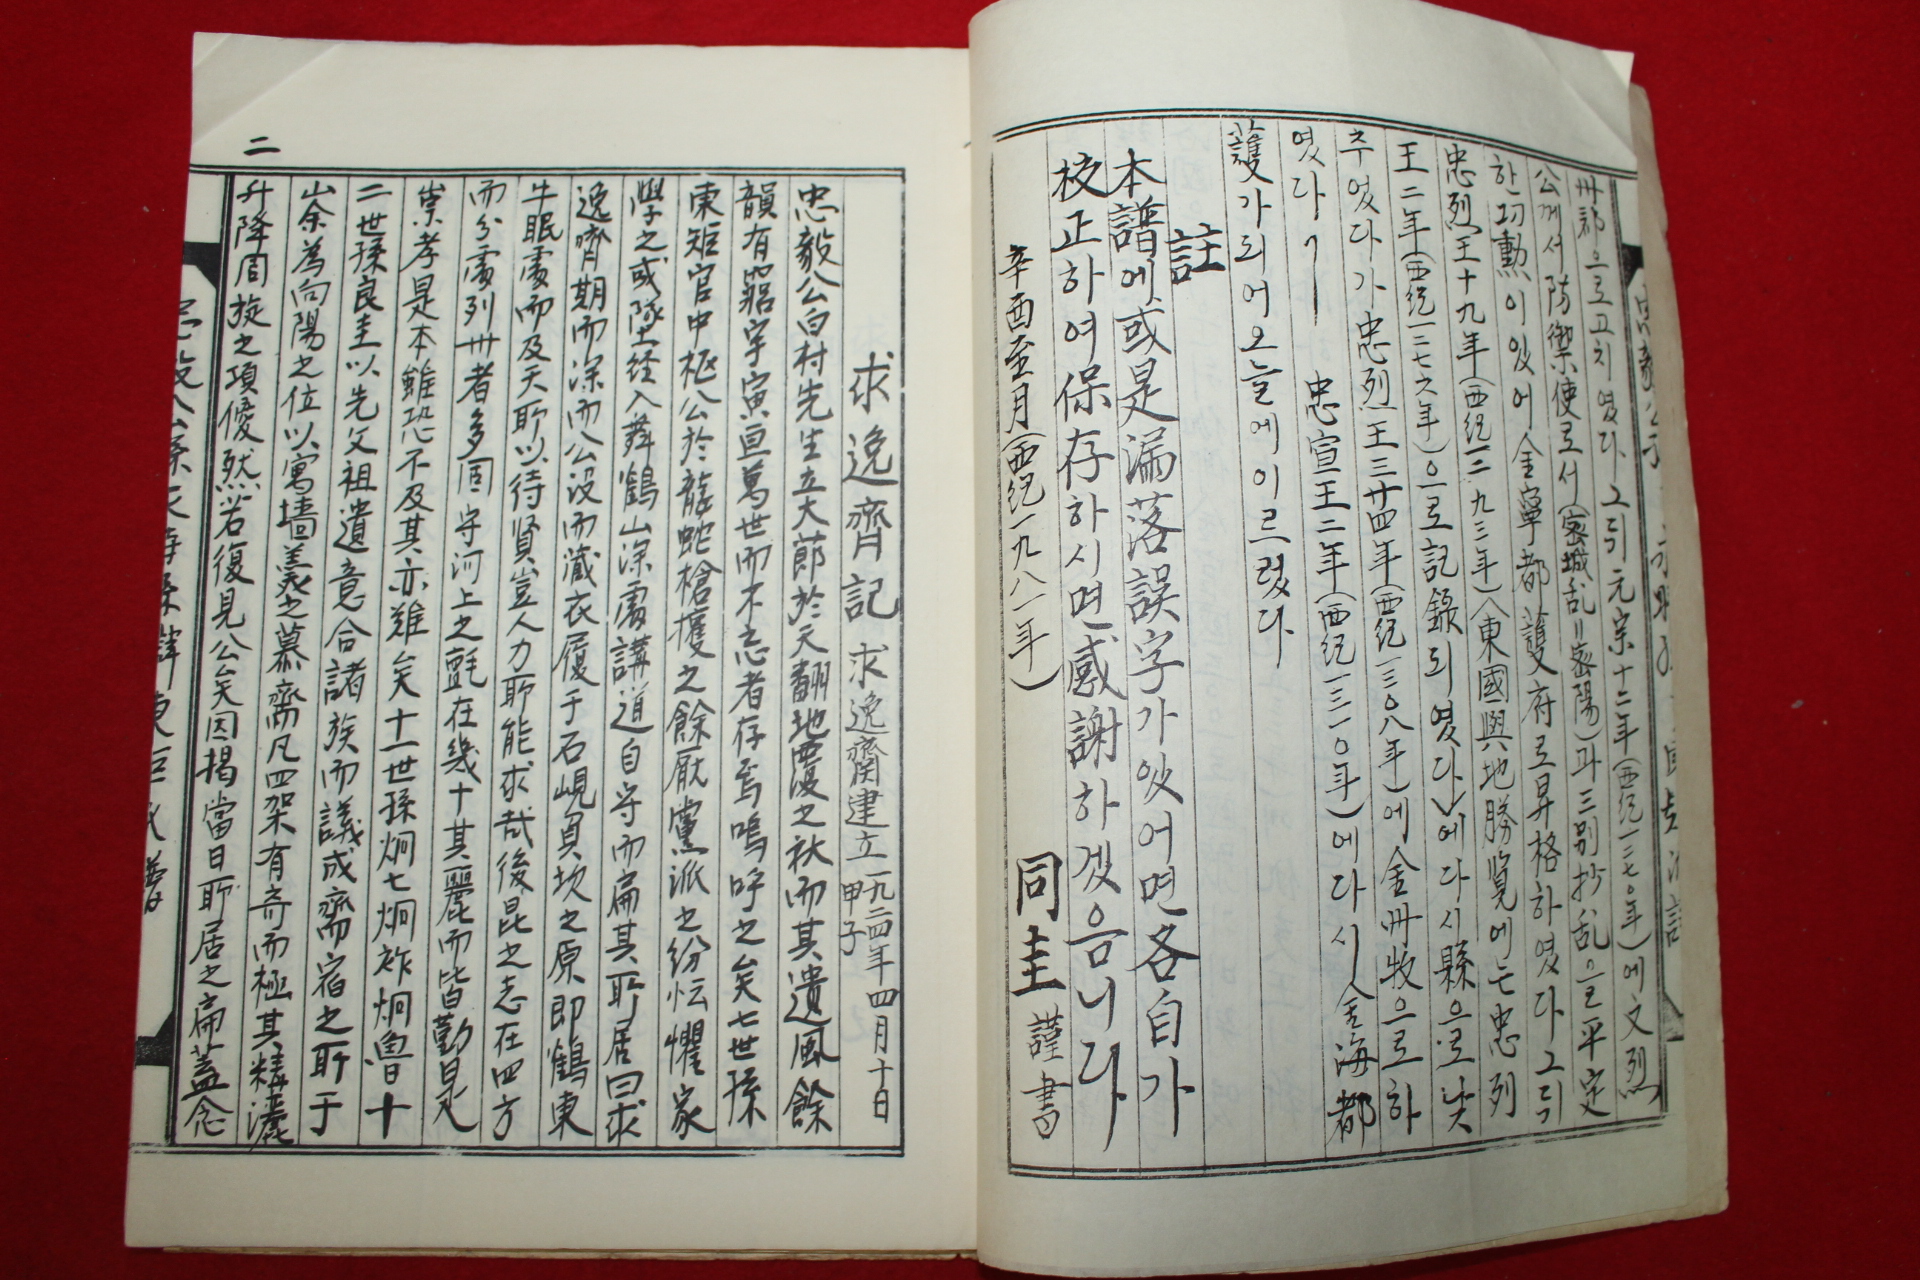 州郡으로고치였다 그뒤元宗十二年(西紀一二七〇年)에文烈
公께서防禦使로서(密城乱=密陽)과三別抄乱을平定
한功勳이있어金寧都護府로昇格하였다그뒤
忠烈王十九年(西紀一二九三年)〈東國輿地勝覧에는忠列
王二年(西紀一二七六年)으로記錄되였다〉에다시縣으로낮
추였다가忠烈王三十四年(西紀一三〇八年)에金州牧으로하
였다가 忠宣王二年(西紀一三一〇年)에다시金海都
護가되어오늘에이르렀다
註
本譜에或是漏落誤字가있어면各自가
校正하여保存하시면感謝하겠음니다
辛酉至月(西紀一九八一年) 同圭 謹書
二
求逸齊記 求逸齋建立一九二四年四月十日 甲子
忠毅公白村先生立大節於天翻地覆之秋而其遺風餘
韻有罷宇宙亘萬世而不忘者存焉嗚呼之矣七世孫
東矩官中枢公於龍蛇槍攘之餘厭黨派之紛忶懼家
學之或墜経入舞鶴山深處講道自守而扁其所居曰求
逸齊期而深而公没而藏衣履于石峴負坎之原即鶴東
牛眠處而及天耶以待賢豈人力所能求哉後昆之志在四方
而分處列州者多周守河上之氈在幾十其麗而皆勤見
崇孝是本雖恐不及其亦難矣十一世孫炯七炯祚炯魯十
二世孫良圭以先父祖遺意合諸族而議成齋宿之所于
山余為向陽之位以寓墻羹之慕齋凡四架有奇而極其精灑
升降周旋之項優然若復見公矣因揭當日所居之扁蓋念